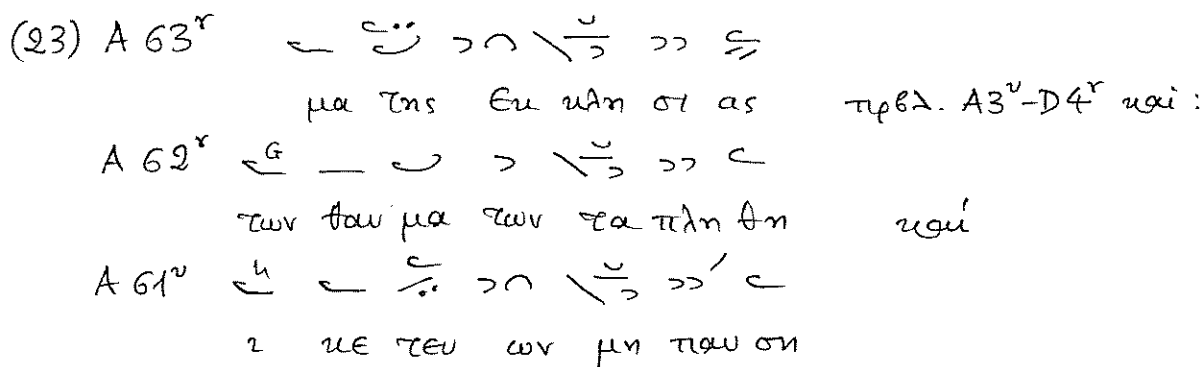 (23) A 63ʳ
μα της Εκ κλη σι ας πρβλ. A3ᵛ-D4ʳ καί:
A 62ʳ
των θαυ μα των τα πλη θη καί
A 61ᵛ
ι κε τευ ων μη παυ ση